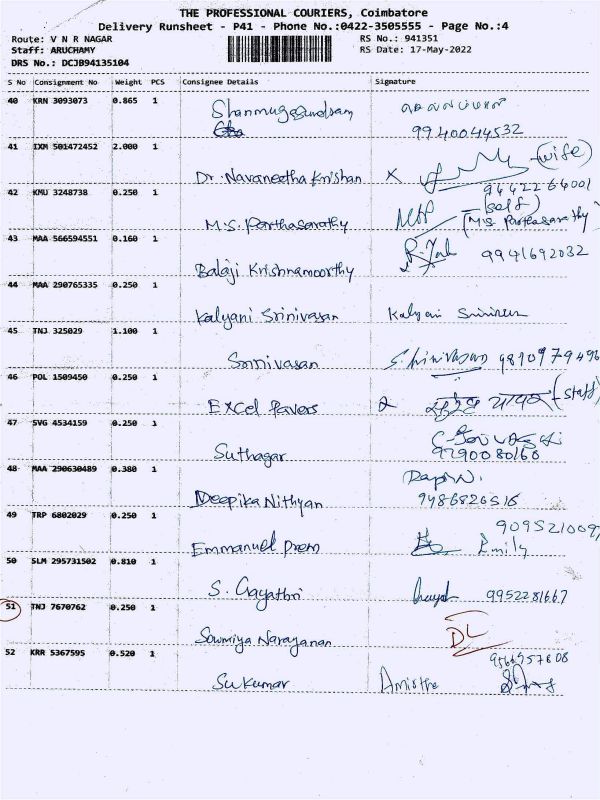 THE PROFESSIONAL COURIERS, Coimbatore
Delivery Runsheet - P41 - Phone No.:0422-3505555 - Page No.:4
Route: V N R NAGAR
RS No.: 941351
Staff: ARUCHAMY
RS Date: 17-May-2022
DRS No.: DCJB94135104
S No Consignment No Weight PCS Consignee Details Signature
40 KRN 3093073 0.865 1
Shanmugasundram
9940044532
41 IXM 501472452 2.000 1
Dr. Navaneetha Krishnan X (wife)
9442264001
42 KMU 3248738 0.250 1
(self)
M.S. Parthasarathy (M.S Parthasarathy
43 MAA 566594551 0.160 1
Balaji Krishnamoorthy 9941692032
44 MAA 290765335 0.250 1
Kalyani Srinivasan Kalyani
45 TNJ 325029 1.100 1
Srinivasan S. Srinivasan
46 POL 1509450 0.250 1
Excel Pavers यादव (staff)
47 SVG 4534159 0.250 1
Suthagar 9790080160
48 MAA 290630489 0.380 1
Deepika Nithyan 9486826516
49 TRP 6802029 0.250 1
Emmanuel Prem Emily
50 SLM 295731502 0.810 1
S. Gayathri 9952281667
51 TNJ 7670762 0.250 1
Sowmiya Narayanan DL
52 KRR 5367595 0.520 1
Sukumar Amirtha